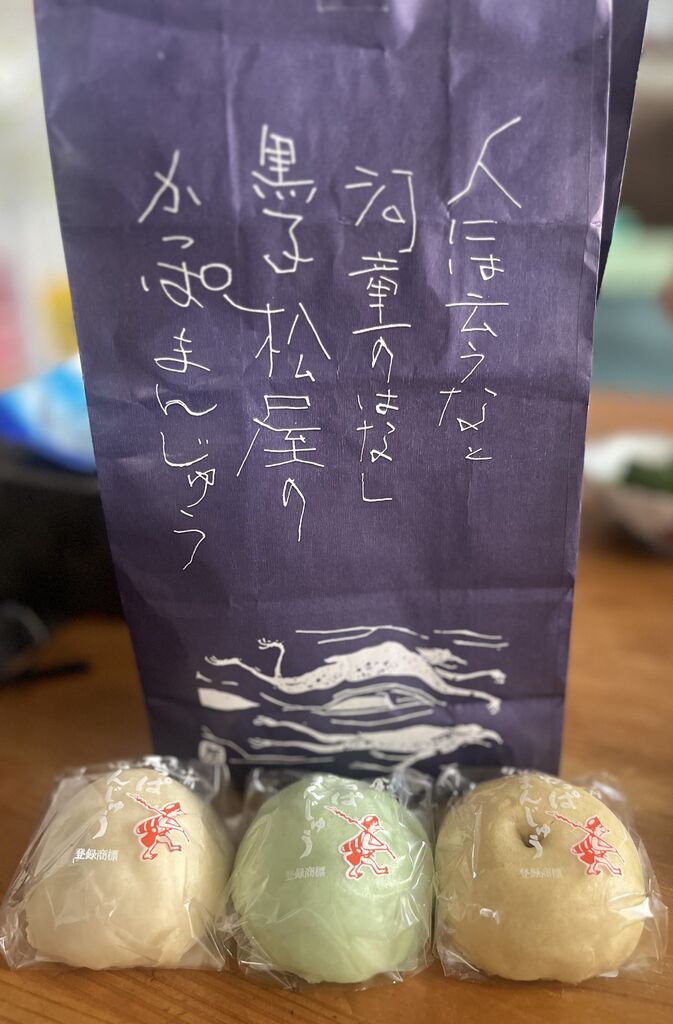 人には云うなと
河童のはなし
黒子松屋の
かっぱまんじゅう
ぱ
んじゅう
登録商標
ぱ
じゅう
登録商標
ぱ
まんじゅう
登録商標